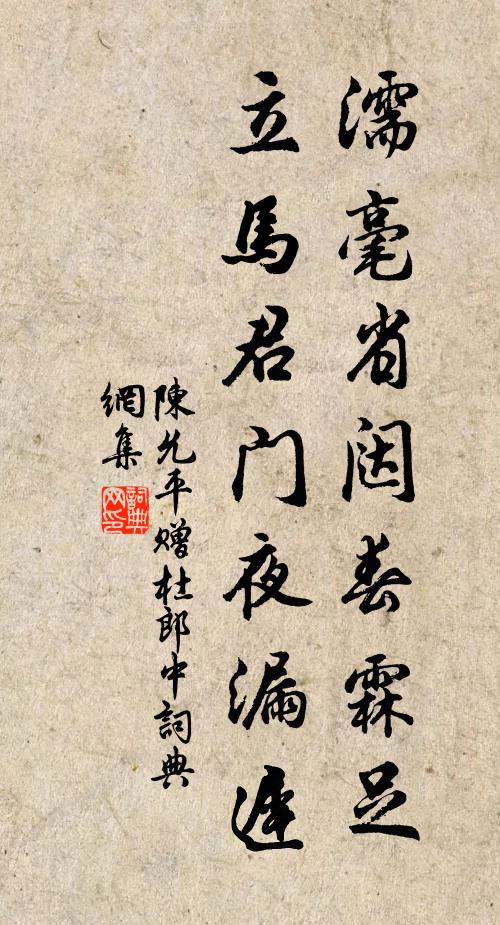 濡毫省闼春霖足
立馬君門夜漏遲
陳允平贈杜郎中詞典
網集
詞典網印